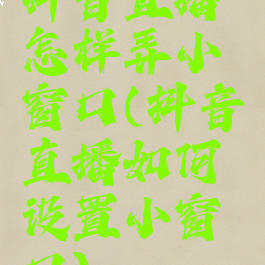 抖音直播
怎样弄小
窗口(抖音
直播如何
设置小窗
口)